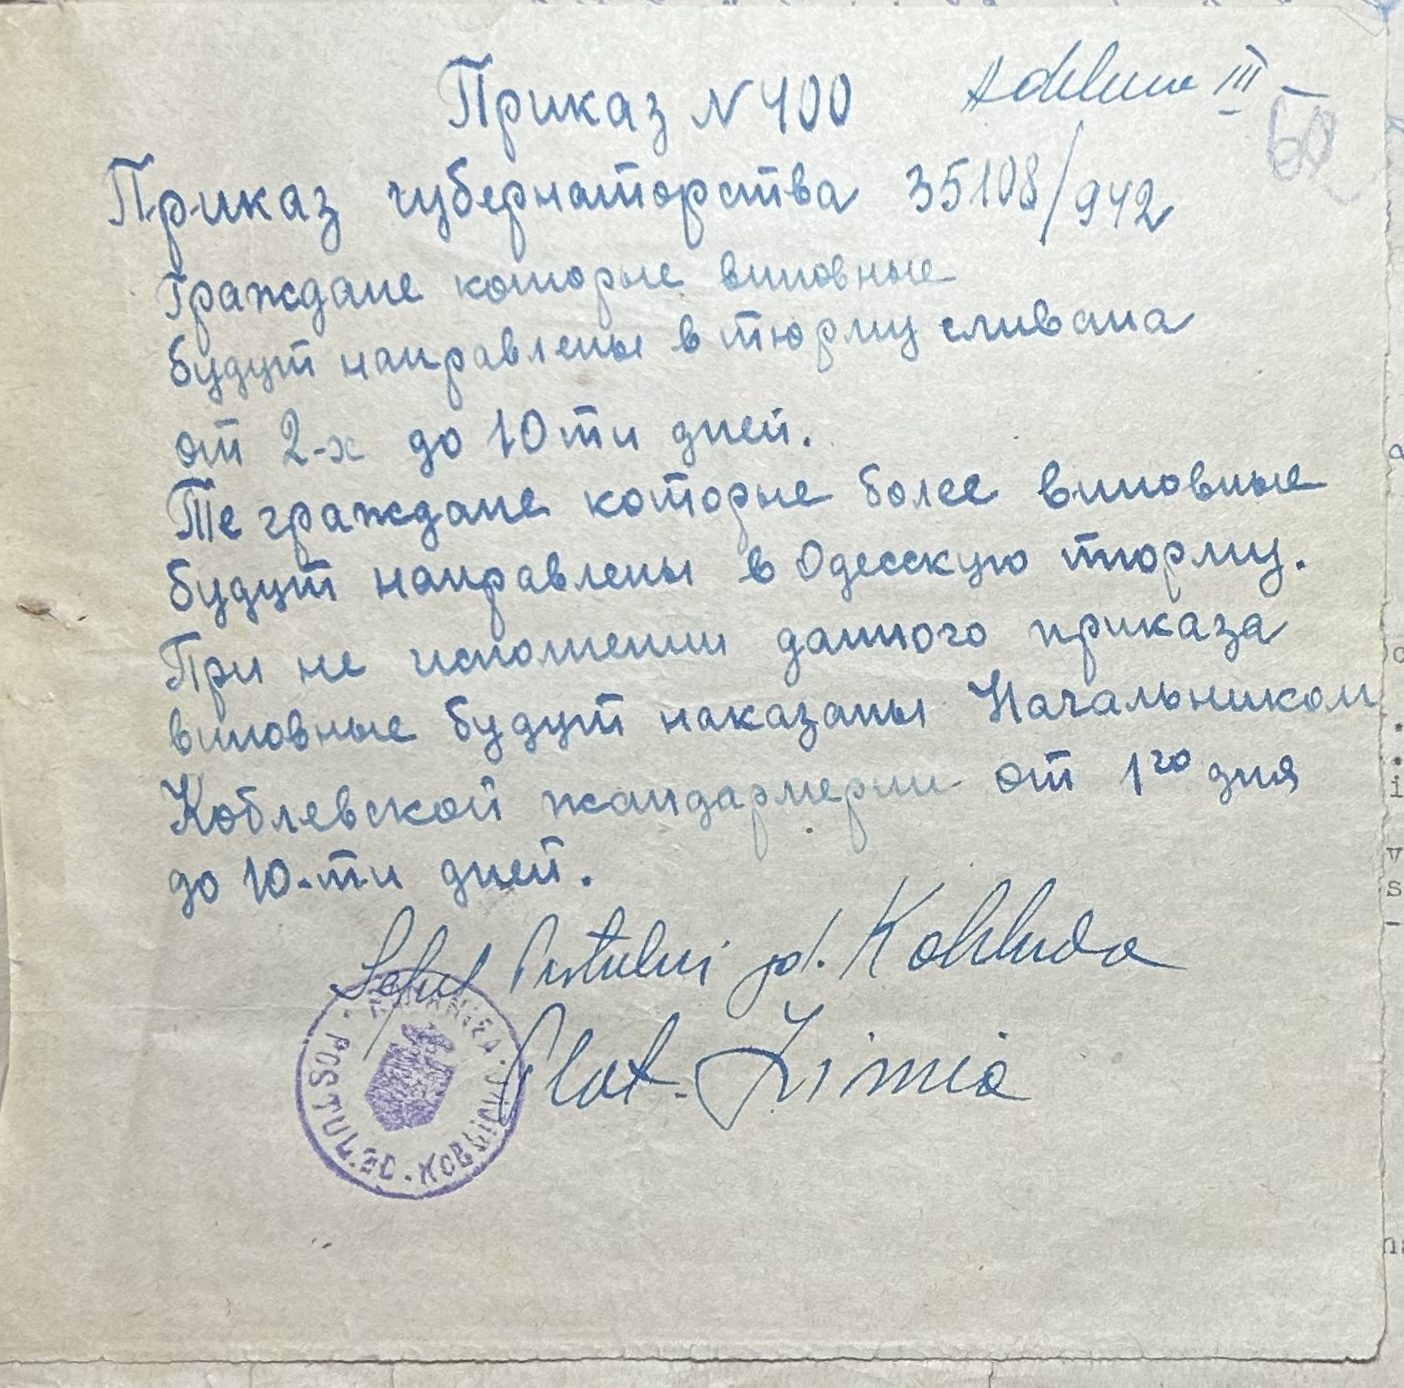 Приказ № 400
III
60
Приказ губернаторства 35108/942
Граждане которые виновные
будут направлены в тюрму сливана
от 2-х до 10ти дней.
Те граждане которые более виновные
будут направлены в Одесскую тюрму.
При не исполнении данного приказа
виновные будут наказаны Начальником
Коблевской жандармерии от 1го дня
до 10-ти дней.
Șeful Postului jd. Kobleva
Plot.
ROMANIEA
POSTUL JD. KOBLEVO